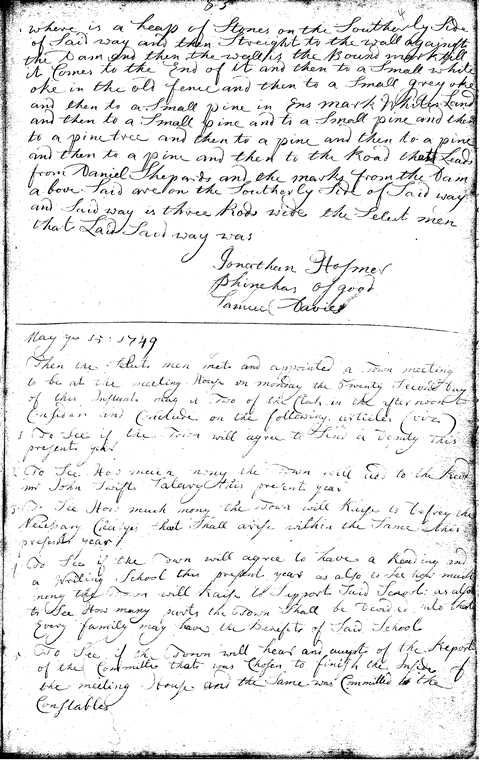 83
where is a heap of Stones on the Southerly Side
of Said way and then Streight to the wall against
the Dam and then the wall is the Bound mark till
it Comes to the End of it and then to a Small white
oke in the old fence and then to a Small grey oke
and then to a Small pine in Ens mark Whites Land
and then to a Small pine and to a Small pine and then
to a pine tree and then to a pine and then to a pine
and then to a pine and then to the Road that Leads
from Daniel Shepards and the marks from the Dam
a bove Said are on the Southerly Side of Said way
and Said way is three Rods wide the Select men
that Laid Said way was
Jonathan Hosmer
Phinehas Osgood
Samuel Davis
May ye 15: 1749
Then the Select men met and appointed a Town meeting
to be at the meeting House on monday the Twenty Second day
of this Instant may at Two of the Clock in the afternoon to
Consider and Conclude on the following articles (viz)
1 To See if the Town will agree to Send a Deputy this
present year
2 To See How much mony the Town will add to the Revd
mr John Swifts Salary this present year
3 To See How much mony the Town will Raise to Defray the
Necessary Charges that Shall arise within the Same this
present year
To See if the Town will agree to have a Reading and
a Writing School this present year as also to See how much
mony the Town will Raise to Support Said School as also
to See How many parts the Town Shall be Devided into that
Every family may have the Benifits of Said School
To See if the Town will hear and accept of the Report
of the Committee that was Chosen to finish the Inside of
the meeting House and the Same was Committed to the
Constables